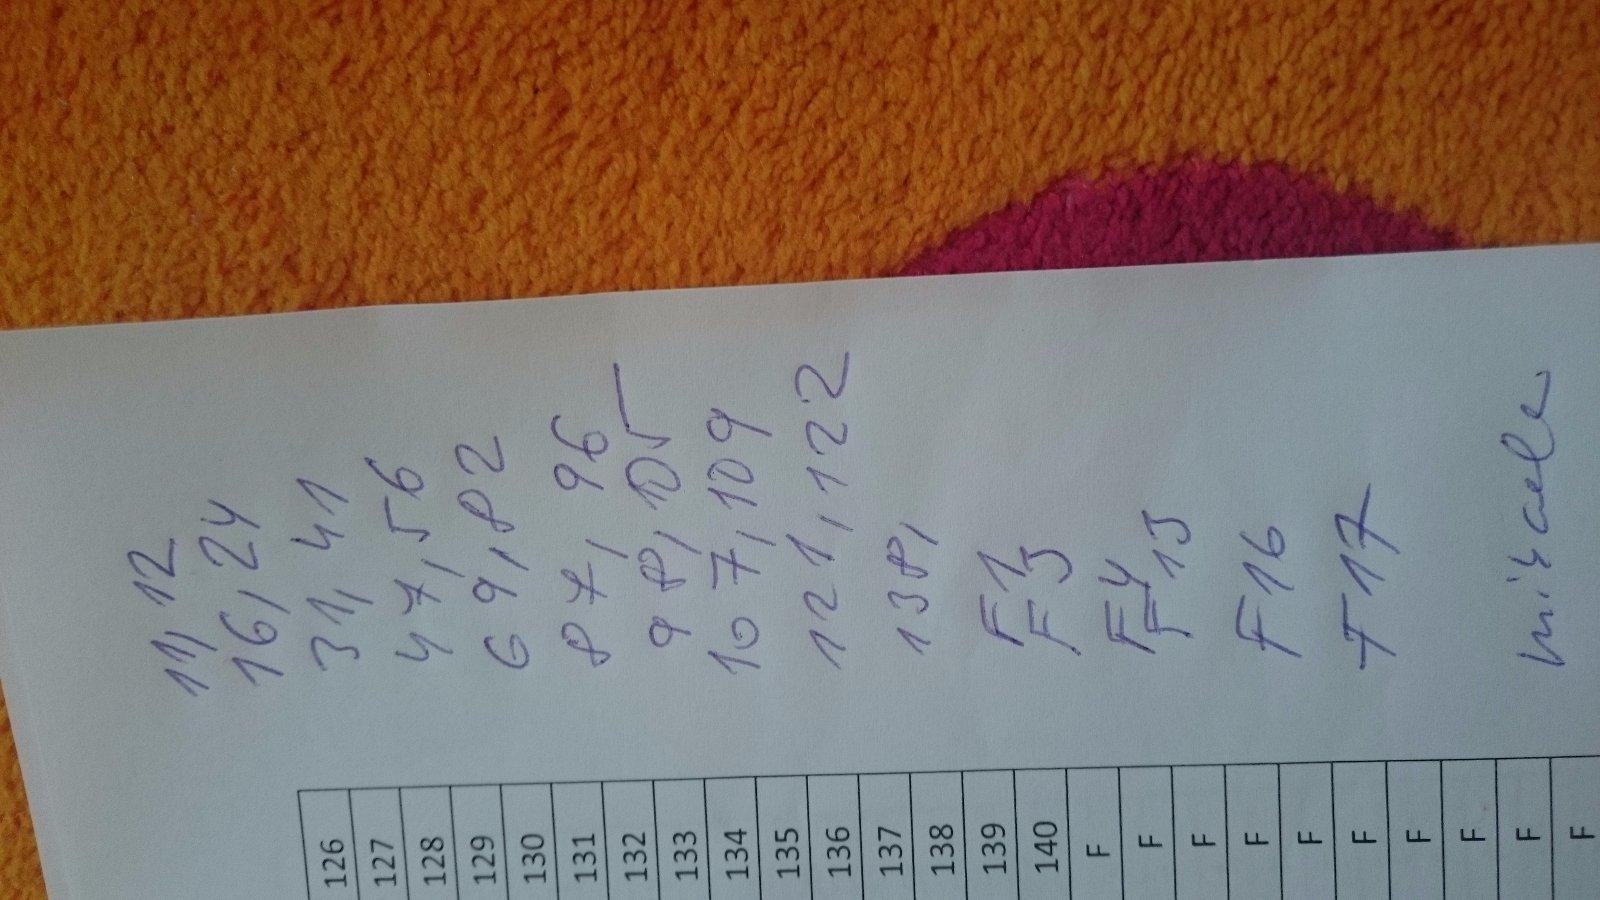 11, 12
16, 24
31, 41
47, 56
69, 82
87, 96
98, 105
107, 109
121, 122
138,
F1
F3
F4
F13
F16
F17
126
127
128
129
130
131
132
133
134
135
136
137
138
139
140
F
F
F
F
F
F
F
F
F
F